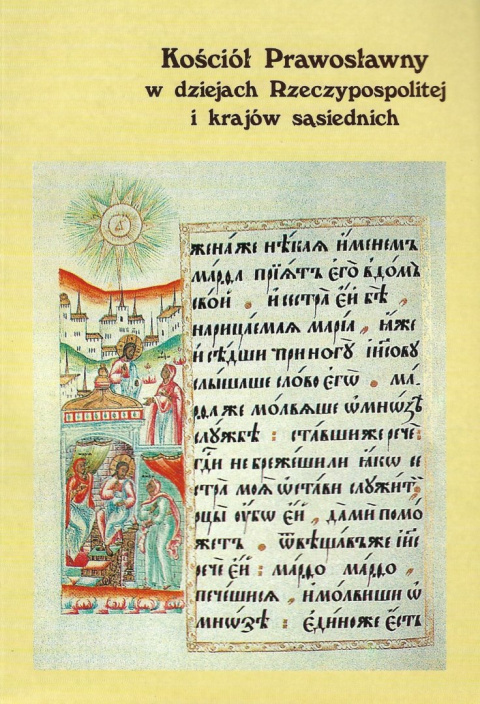 Kościół Prawosławny
w dziejach Rzeczypospolitej
i krajów sąsiednich
жена́же нѣ́каѧ и҆́менемъ
ма́рѳа прїѧ́тъ є҆го̀ в̾до́мъ
сво́й . и҆ сестра̀ є҆́й бѣ̀ ,
нарица́емаѧ марі́а , ꙗ҆́же
и҆ сѣ́дши при ногꙋ̀ і҆и҃совꙋ
слы́шаше сло́во є҆гѡ̀ . ма́
рѳа же мо́лвѧше ѡ҆мно́зѣ
слꙋ́жбѣ : ста́вшиже речѐ :
гд҇и не бреже́шили ꙗ҆́кѡ се
стра̀ моѧ̀ ѡ҆ста́ви слꙋжи́т
рцы̀ ᲂу҆́бѡ є҆́й , да́ мѝ помо́
жетъ . ѿвѣща́въже і҆и҃с
речѐ є҆́й : ма́рѳо ма́рѳо ,
пече́шисѧ , и҆ мо́лвиши ѡ҆
мно́зѣ : є҆ди́ноже є҆́сть